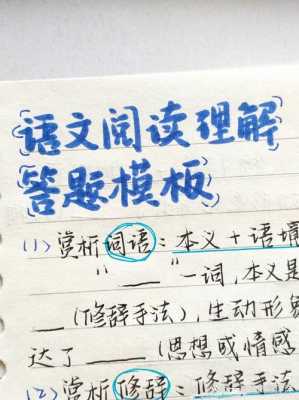 语文阅读理解
答题模板
(1) 赏析词语：本义 + 语境
“ ___ ”一词，本义是
___ (修辞手法)，生动形象
达了 ___ (思想或情感
(2) 赏析修辞：修辞手法